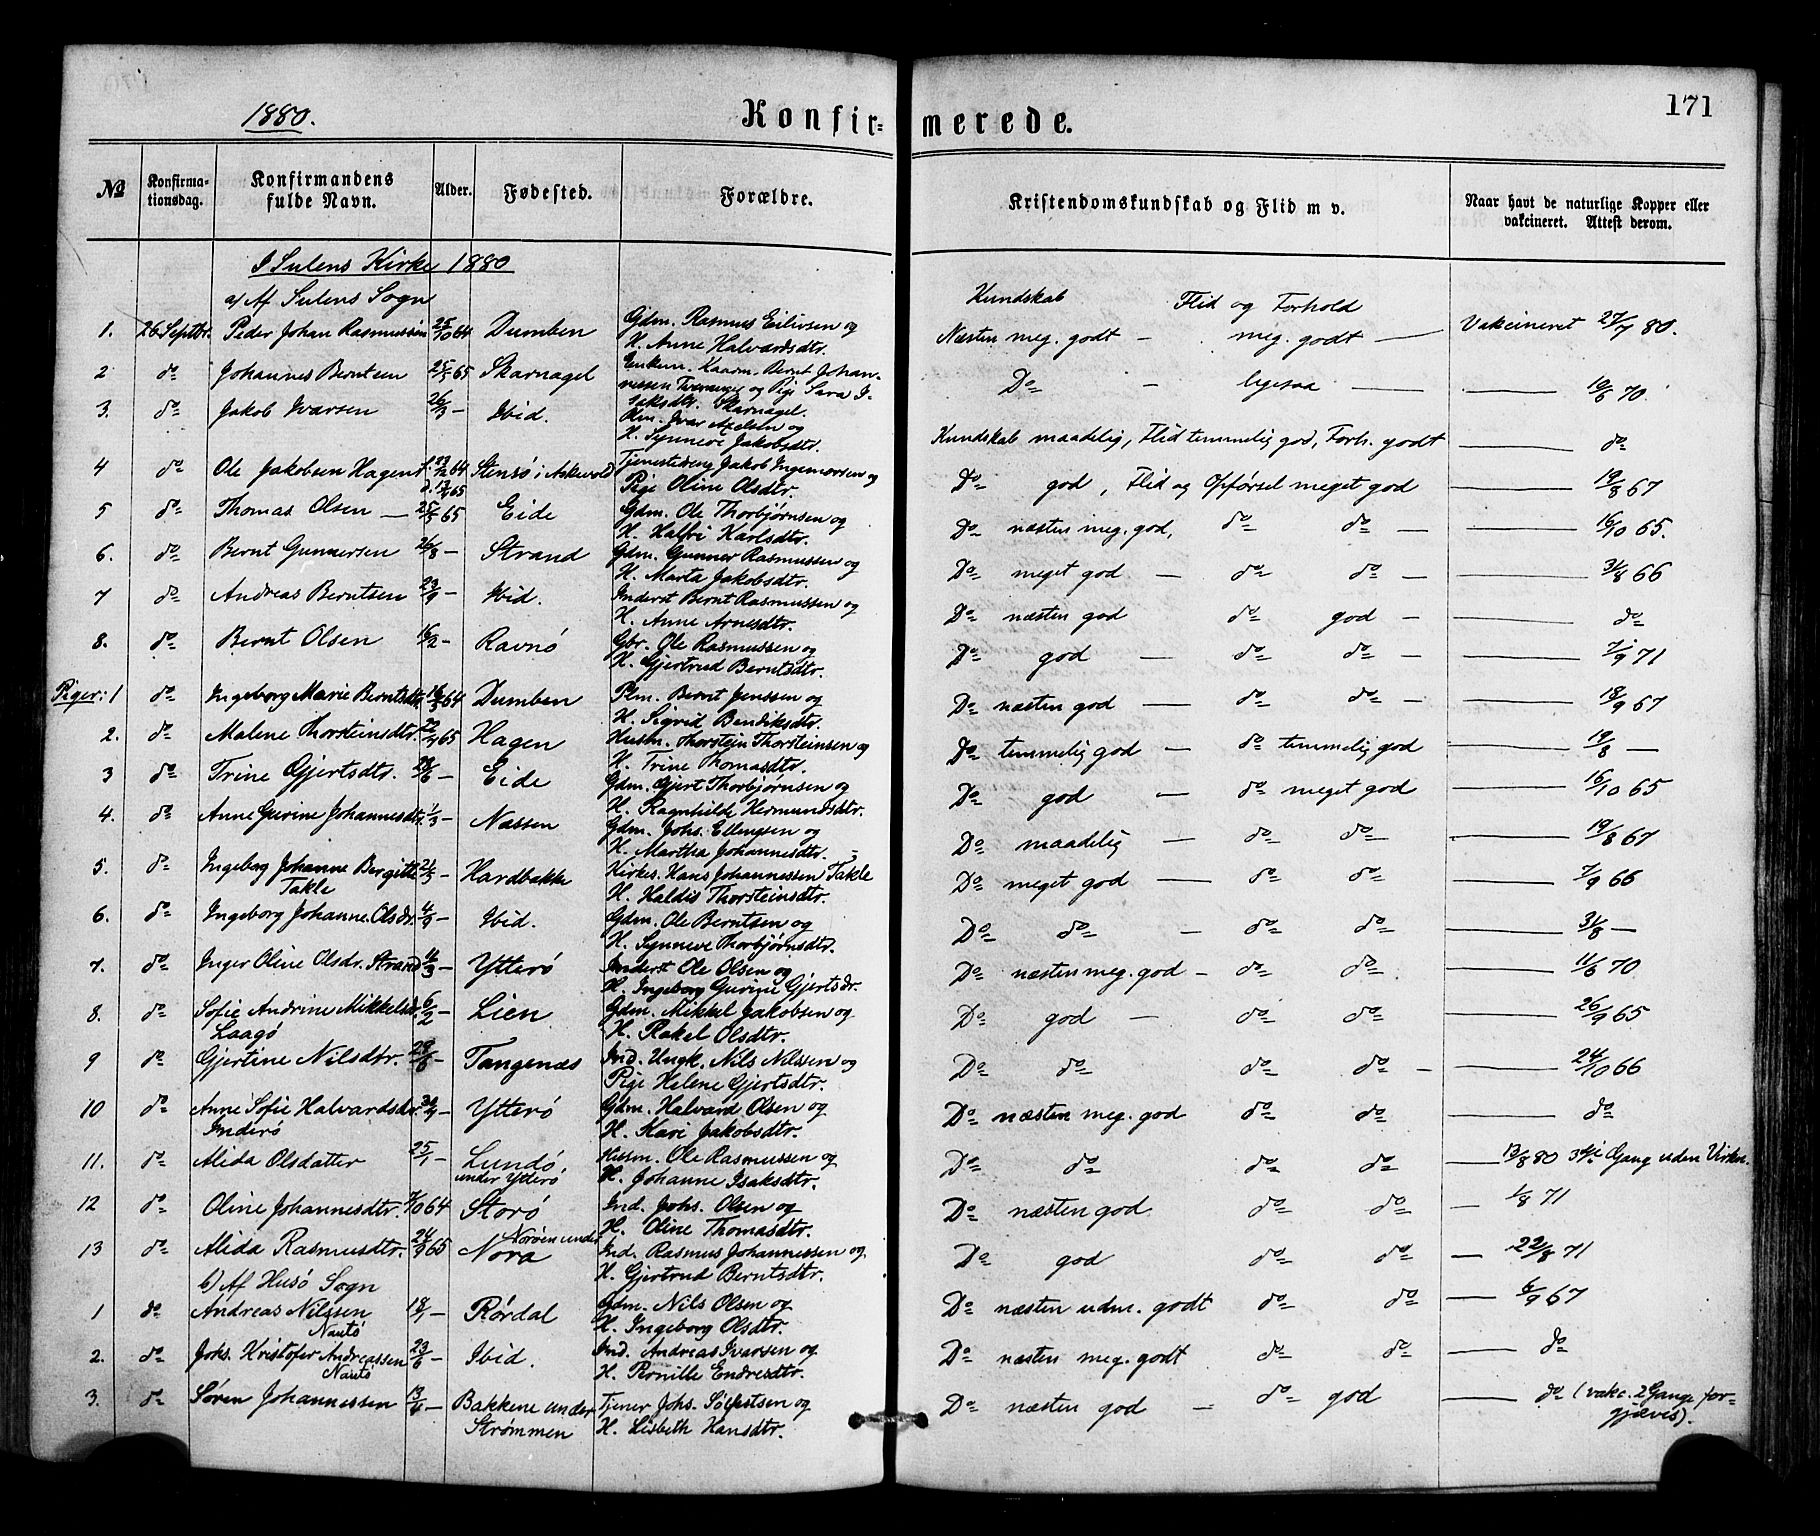 1880.
Konfirmerede.
171
№
Konfirma-
tionsdag.
Konfirmandens
fulde Navn.
Alder.
Fødested.
Forældre.
Kristendomskundskab og Flid m v.
Naar havt de naturlige Kopper eller
vakcineret. Attest derom.
I Sulens Kirke 1880
a) Af Sulens Sogn
Kundskab Flid og Forhold
1. 26 Septbr. Peder Johan Rasmussen 25/10 64 Dumben Gdm. Rasmus Eilivsen og
H. Anne Halvardsdtr. Næsten meg. godt - meg. godt — Vakcineret 27/7 80.
2 do Johannes Berntsen 25/5 65 Skarnagel Enkem. Kaarm. Bernt Johan-
nessen Tveranger og Pige Sara I-
saksdtr. Skarnagel. Do - ligesaa — 10/6 70.
3. do Jakob Ivarsen 26/3 - Ibid. Plm. Ivar Axelsen og
H. Synneve Jakobsdtr. Kundskab maadelig, Flid temmelig god, Forh. godt — do
4 do Ole Jakobsen Hagen f. 23/12 64 d. 17/4 65 Stensö i Askevold Tjenestedreng Jakob Ingemarsen og
Pige Oline Olsdtr. Do god, Flid og Opførsel meget god — 19/8 67
5 do Thomas Olsen — 25/5 65 Eide Gdm. Ole Thorbjørnsen og
H. Halfri Karlsdtr. Do næsten meg. god, do do — 16/10 65.
6. do Bernt Gunnersen 26/8 - Strand Gdm. Gunner Rasmussen og
H. Marta Jakobsdtr. Do meget god — do do — 31/8 66
7 do Andreas Berntsen 23/9 - Ibid. Inderst Bernt Rasmussen og
H. Anne Arnesdtr. Do næsten god do god — do
8. do Bernt Olsen 16/2 - Ravnö Gbr. Ole Rasmussen og
H. Gjertrud Berntsdtr. Do god — do do — 7/9 71
Piger: 1 do Ingeborg Marie Berntsdtr. 64 Dumben Plm. Bernt Jenssen og
H. Sigrid Bendiksdtr. Do næsten god — do do — 18/9 67
2. do Malene Thorsteinsdtr. 65 Hagen Husm. Thorstein Thorsteinsen og
H. Trine Thomasdtr. Do temmelig god — do temmelig god — 19/8 —
3 do Trine Gjertsdtr. 28/6 - Eide Gdm. Gjert Thorbjørnsen og
H. Ragnhilde Hermundsdtr. Do god — do meget god — 16/10 65
4. do Anne Gurine Johannesdtr. 1/3 - Nassen Gdm. Johs. Ellingsen og
H. Martha Johannesdtr. Do maadelig — do do — 19/8 67
5 do Ingeborg Johanne Bergitte
Takle 21/5 - Hardbakke Kirkes. Hans Johannessen Takle
H. Haldis Thorsteinsdtr. Do meget god — do do — 7/9 66
6. do Ingeborg Johanne Olsdr. 4/9 - Ibid. Gdm. Ole Berntsen og
H. Synneve Thorbjørnsdtr. Do do - do do — 31/8 —
7. do Inger Oline Olsdr. Strand 11/3 - Ytterö Inderst Ole Olsen og
H. Ingeborg Gurine Gjertsdr. Do næsten meg. god - do do — 11/6 70
8. do Sofie Andrine Mikkelsdr.
Laagö 6/2 - Lien Gdm. Mikkel Jakobsen og
H. Rakel Olsdtr. Do god — do do — 26/9 65
9 do Gjertine Nilsdtr. - Tangenæs Ind. Ungk. Nils Nilssen og
Pige Helene Gjertsdtr. Do do do do — 24/10 66
10 do Anne Sofie Halvardsdtr.
Inderö - Ytterö Gdm. Halvard Olsen og
H. Kari Jakobsdtr. Do næsten meg. god do do — do
11. do Alida Olsdatter 25/1 - Lundö,
under Ytterö Husm. Ole Rasmussen og
H. Johanne Isaksdtr. Do do do do — 13/8 80 3die Gang uden Virkn.
12 do Oline Johannesdtr. 64 Storö Ind. Johs. Olsen og
H. Oline Thomasdtr. Do næsten god do do — 1/8 71
13 do Alida Rasmusdtr. 24/9 65 Norøen under
Nora Ind. Rasmus Johannessen og
H. Gjertrud Berntsdtr. Do god do do — 22/8 71
b) Af Husö Sogn
1 do Andreas Nilssen
Nautö 18/1 - Rördal Gdm. Nils Olsen og
H. Ingeborg Olsdtr. Do næsten udm. godt do do — 6/9 67
2. do Johs. Kristofer Andreassen
Nautö 23/6 - Ibid. Ind. Andreas Ivarsen og
H. Ronille Endresdtr. Do næsten meg. godt. do do — do
3. do Søren Johannessen 13/6 - Bakkene under
Strømmen Tjener Johs. Sölfestsen og
H. Lisbeth Hansdtr. Do næsten god — do god — do (vakc. 2 Gange for-
gjæves).